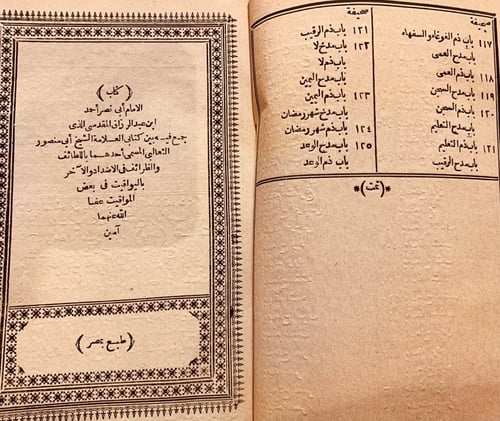 صحيفة
١١٧ باب ذم الغوغاء والسفهاء
باب مدح العمى
١١٨ باب ذم العمى
١١٩ باب مدح السجن
١٢٠ باب ذم السجن
باب مدح التعليم
١٢١ باب ذم التعليم
باب مدح الرقيب
صحيفة
١٢١ باب ذم الرقيب
١٢٢ باب مدح لا
باب ذم لا
باب مدح اليمين
١٢٣ باب ذم اليمين
باب مدح شهر رمضان
١٢٤ باب ذم شهر رمضان
١٢٥ باب مدح الوعد
باب ذم الوعد
﴿تمت﴾
﴿كتاب﴾
الامام أبى نصر أحمد
ابن عبد الرزاق المقدسى الذى
جمع فيه بين كتابى العلامة الشيخ أبى منصور
الثعالبى المسمى أحدهما باللطائف
والظرائف فى الاضداد والآخر
باليواقيت فى بعض
المواقيت عفا
الله عنهما
آمين
﴿طبع بمصر﴾